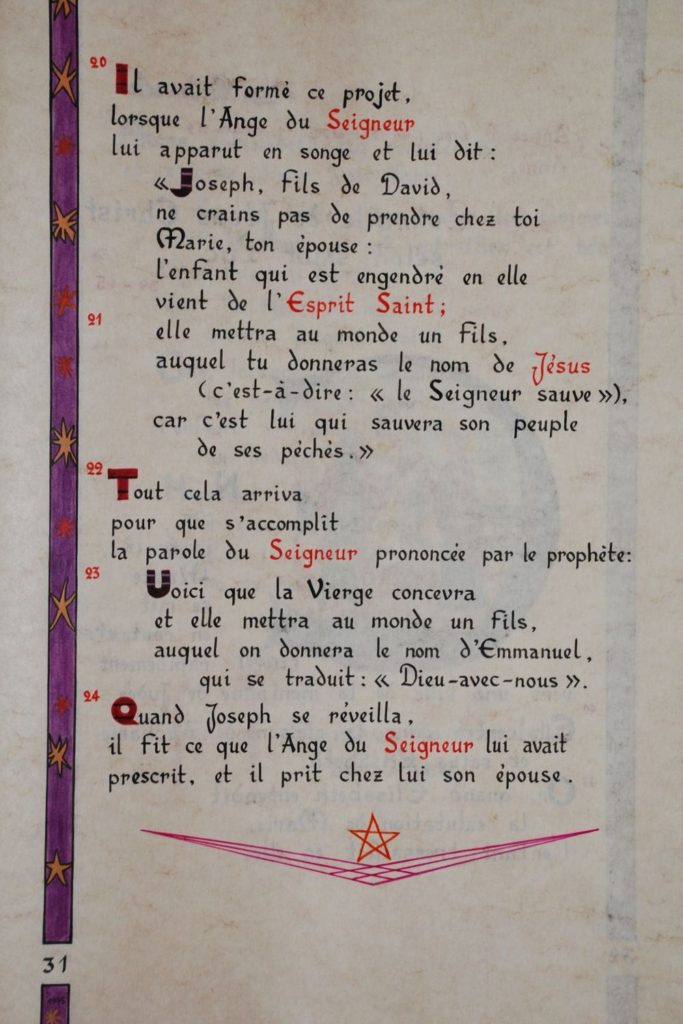 20
Il avait formé ce projet,
lorsque l'Ange du Seigneur
lui apparut en songe et lui dit :
«Joseph, fils de David,
ne crains pas de prendre chez toi
Marie, ton épouse :
l'enfant qui est engendré en elle
vient de l'Esprit Saint;
21
elle mettra au monde un fils,
auquel tu donneras le nom de Jésus
(c'est-à-dire : « le Seigneur sauve »),
car c'est lui qui sauvera son peuple
de ses péchés.»
22
Tout cela arriva
pour que s'accomplît
la parole du Seigneur prononcée par le prophète:
23
Voici que la Vierge concevra
et elle mettra au monde un fils,
auquel on donnera le nom d'Emmanuel,
qui se traduit : « Dieu-avec-nous ».
24
Quand Joseph se réveilla,
il fit ce que l'Ange du Seigneur lui avait
prescrit, et il prit chez lui son épouse.
31